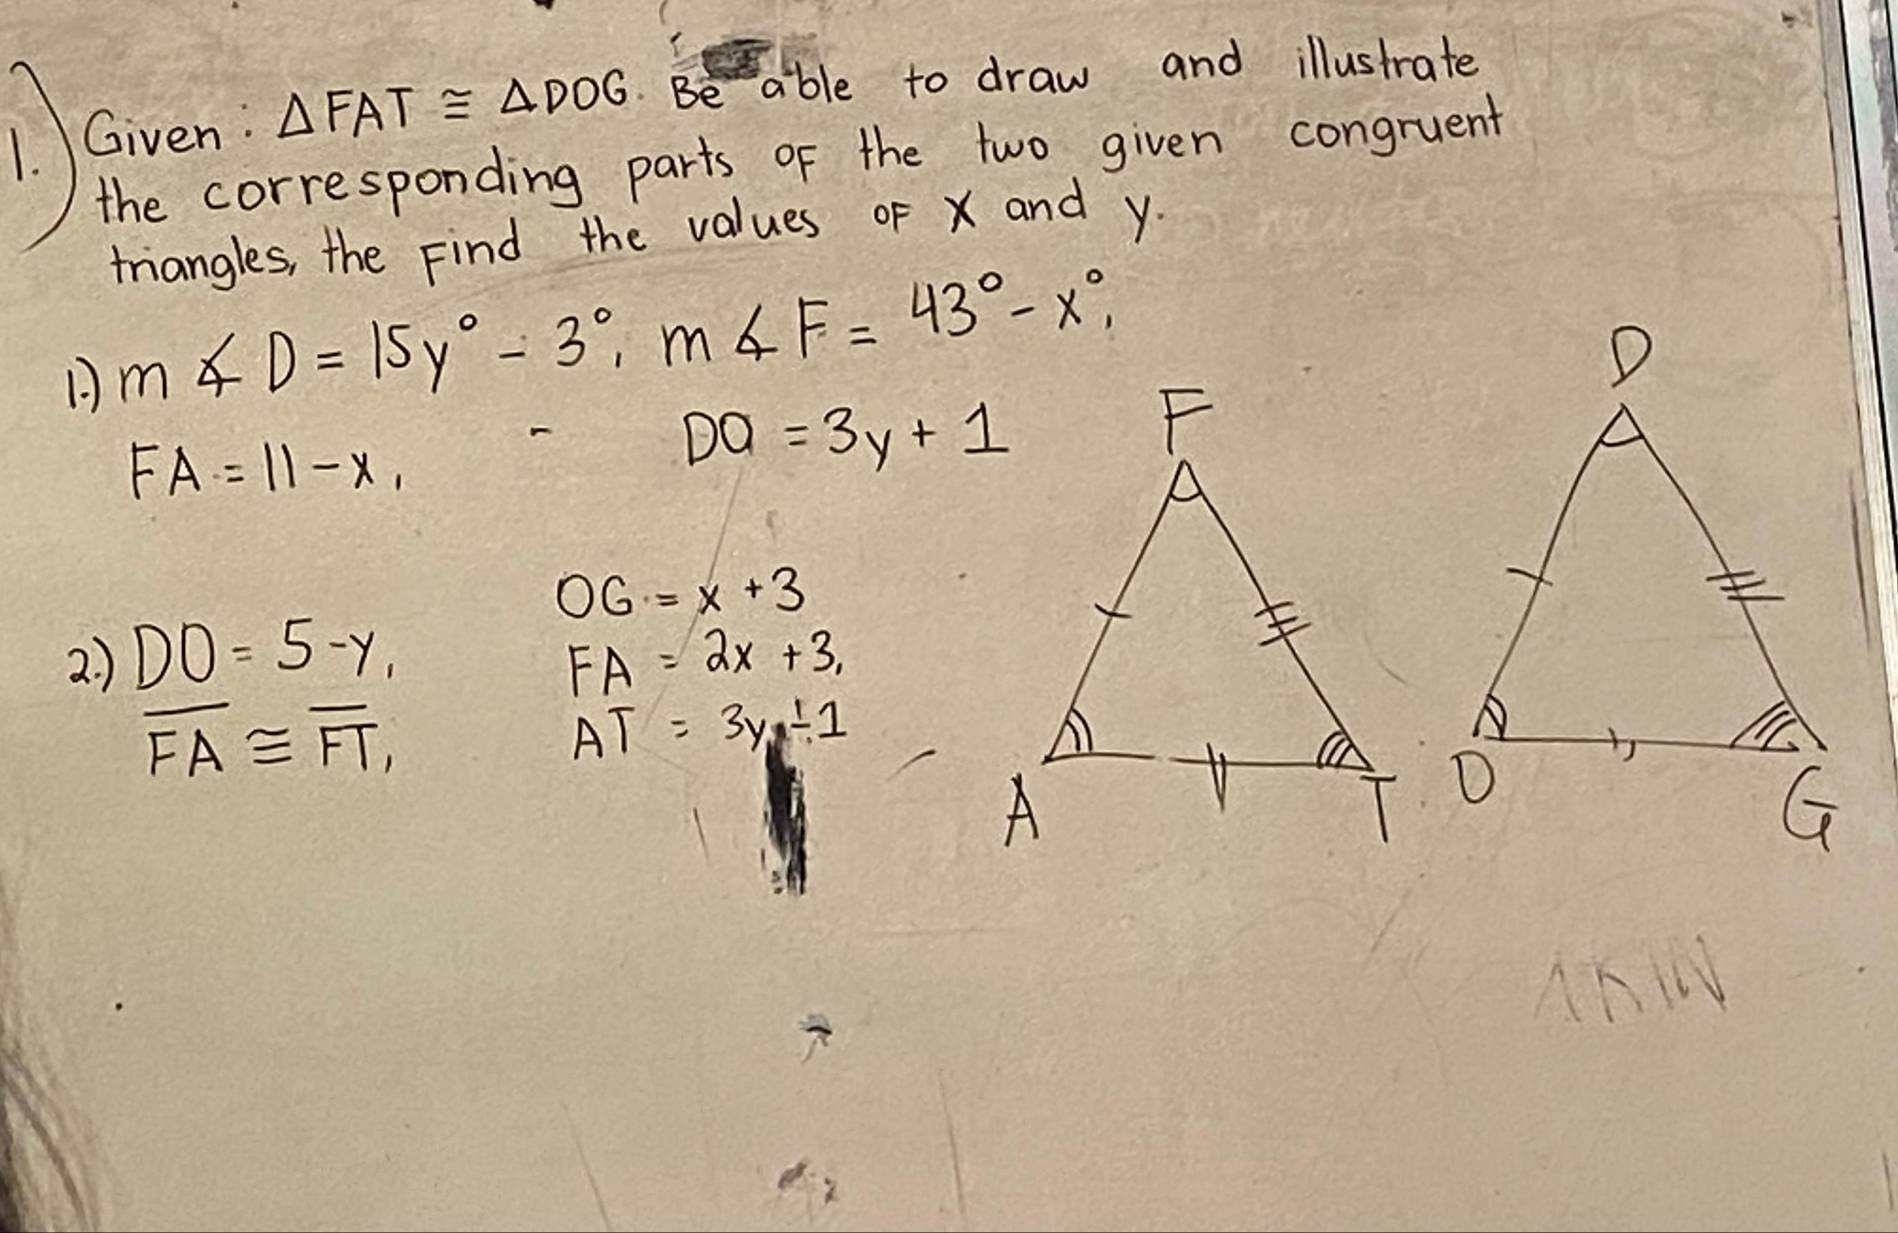 1.) Given: △FAT ≅ △DOG. Be able to draw and illustrate
the corresponding parts OF the two given congruent
triangles, the Find the values OF X and y.
1.) m∡D = 15y° - 3°, m∡F = 43° - x°,
FA = 11 - x, - DO = 3y + 1
2.) DO = 5 - y, OG = x + 3
F̅A̅ ≅ F̅T̅, FA = 2x + 3,
AT = 3y + 1
F
D
A
T
O
G